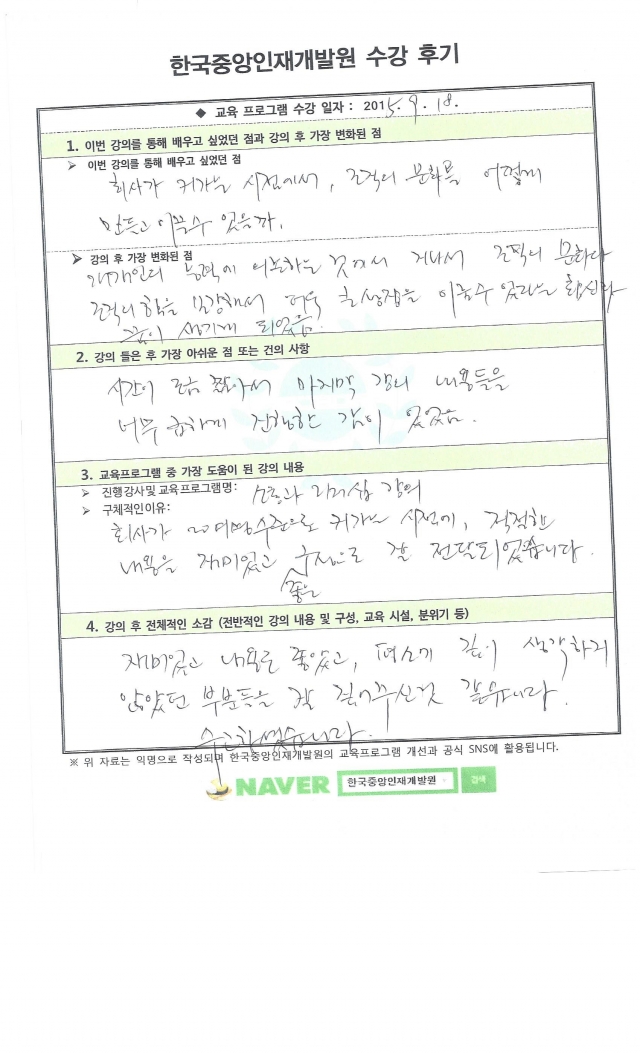 한국중앙인재개발원 수강 후기
◆ 교육 프로그램 수강 일자 : 2015. 9. 18.
1. 이번 강의를 통해 배우고 싶었던 점과 강의 후 가장 변화된 점
➢ 이번 강의를 통해 배우고 싶었던 점
회사가 커가는 시점에서, 조직의 문화를 어떻게
만들고 이끌수 있을까.
➢ 강의 후 가장 변화된 점
개개인의 능력에 의존하는 것에서 지나서 조직의 문화나
조직의 힘을 더욱 큰 성장을 이룰수 있다는
생기게 되었음.
2. 강의 들은 후 가장 아쉬운 점 또는 건의 사항
시간이 조금 짧아서 마지막 강의 내용들을
너무 급하게 진행한 감이 있었음.
3. 교육프로그램 중 가장 도움이 된 강의 내용
➢ 진행강사및교육프로그램명: 소통과 리더십 강의
➢ 구체적인이유:
회사가 20여명수준으로 커가는 시점에, 적절한
내용을 재미있고 좋은 잘 전달되었습니다.
4. 강의 후 전체적인 소감 (전반적인 강의 내용 및 구성, 교육 시설, 분위기 등)
재미있고 내용도 좋았고, 평소에 깊이 생각하지
않았던 부분들을 잘 짚어주신것 같습니다.
수고하셨습니다.
※ 위 자료는 익명으로 작성되며 한국중앙인재개발원의 교육프로그램 개선과 공식 SNS에 활용됩니다.
NAVER 한국중앙인재개발원 검색